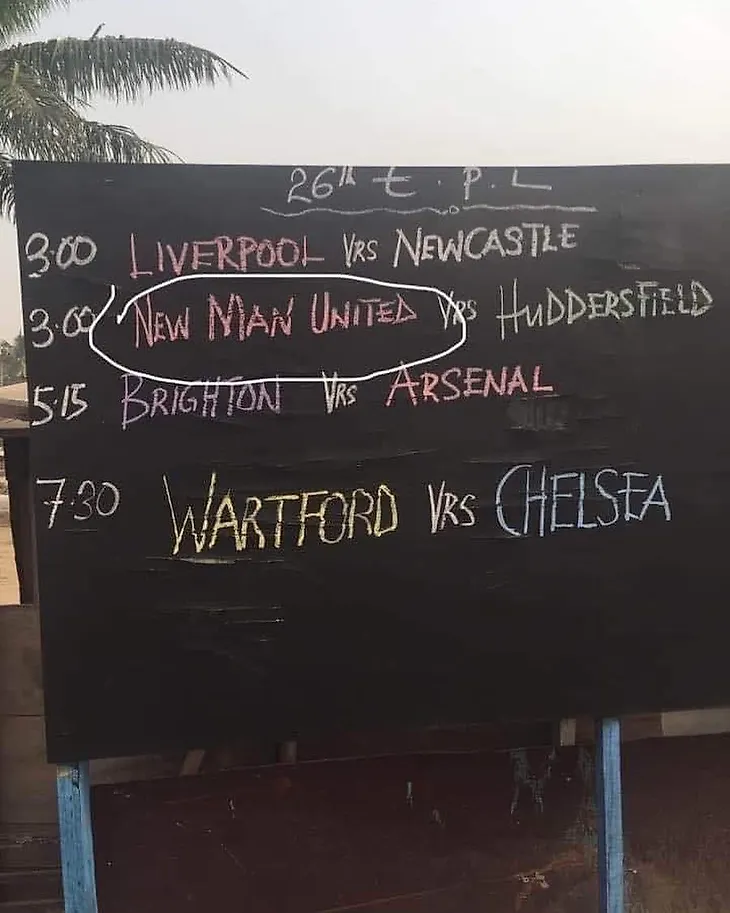 26th E.P.L
3:00 LIVERPOOL VRS NEWCASTLE
3:00 NEW MAN UNITED VRS HUDDERSFIELD
5:15 BRIGHTON VRS ARSENAL
7:30 WARTFORD VRS CHELSEA